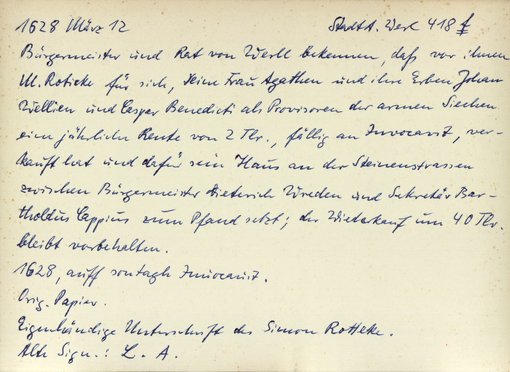 1628 März 12 Stadta. Werl 418 f
Bürgermeister und Rat von Werll bekennen, daß vor ihnen
M. Rotteke für sich, seine Frau Agathen und ihre Erben Johan
Wellien und Casper Benedicti als Provisoren der armen Siechen
eine jährliche Rente von 2 Tlr., fällig an Invocavit, ver-
kauft hat und dafür sein Haus an der Steinenstrassen
zwischen Bürgermeister Dieterich Wreden und Sekretär Bar-
tholdus Cappius zum Pfand setzt; der Wiederkauf um 40 Tlr.
bleibt vorbehalten.
1628, auff sontagh Invocavit.
Orig. Papier.
Eigenhändige Unterschrift des Simon Rotteke.
Alte Sign.: L. A.